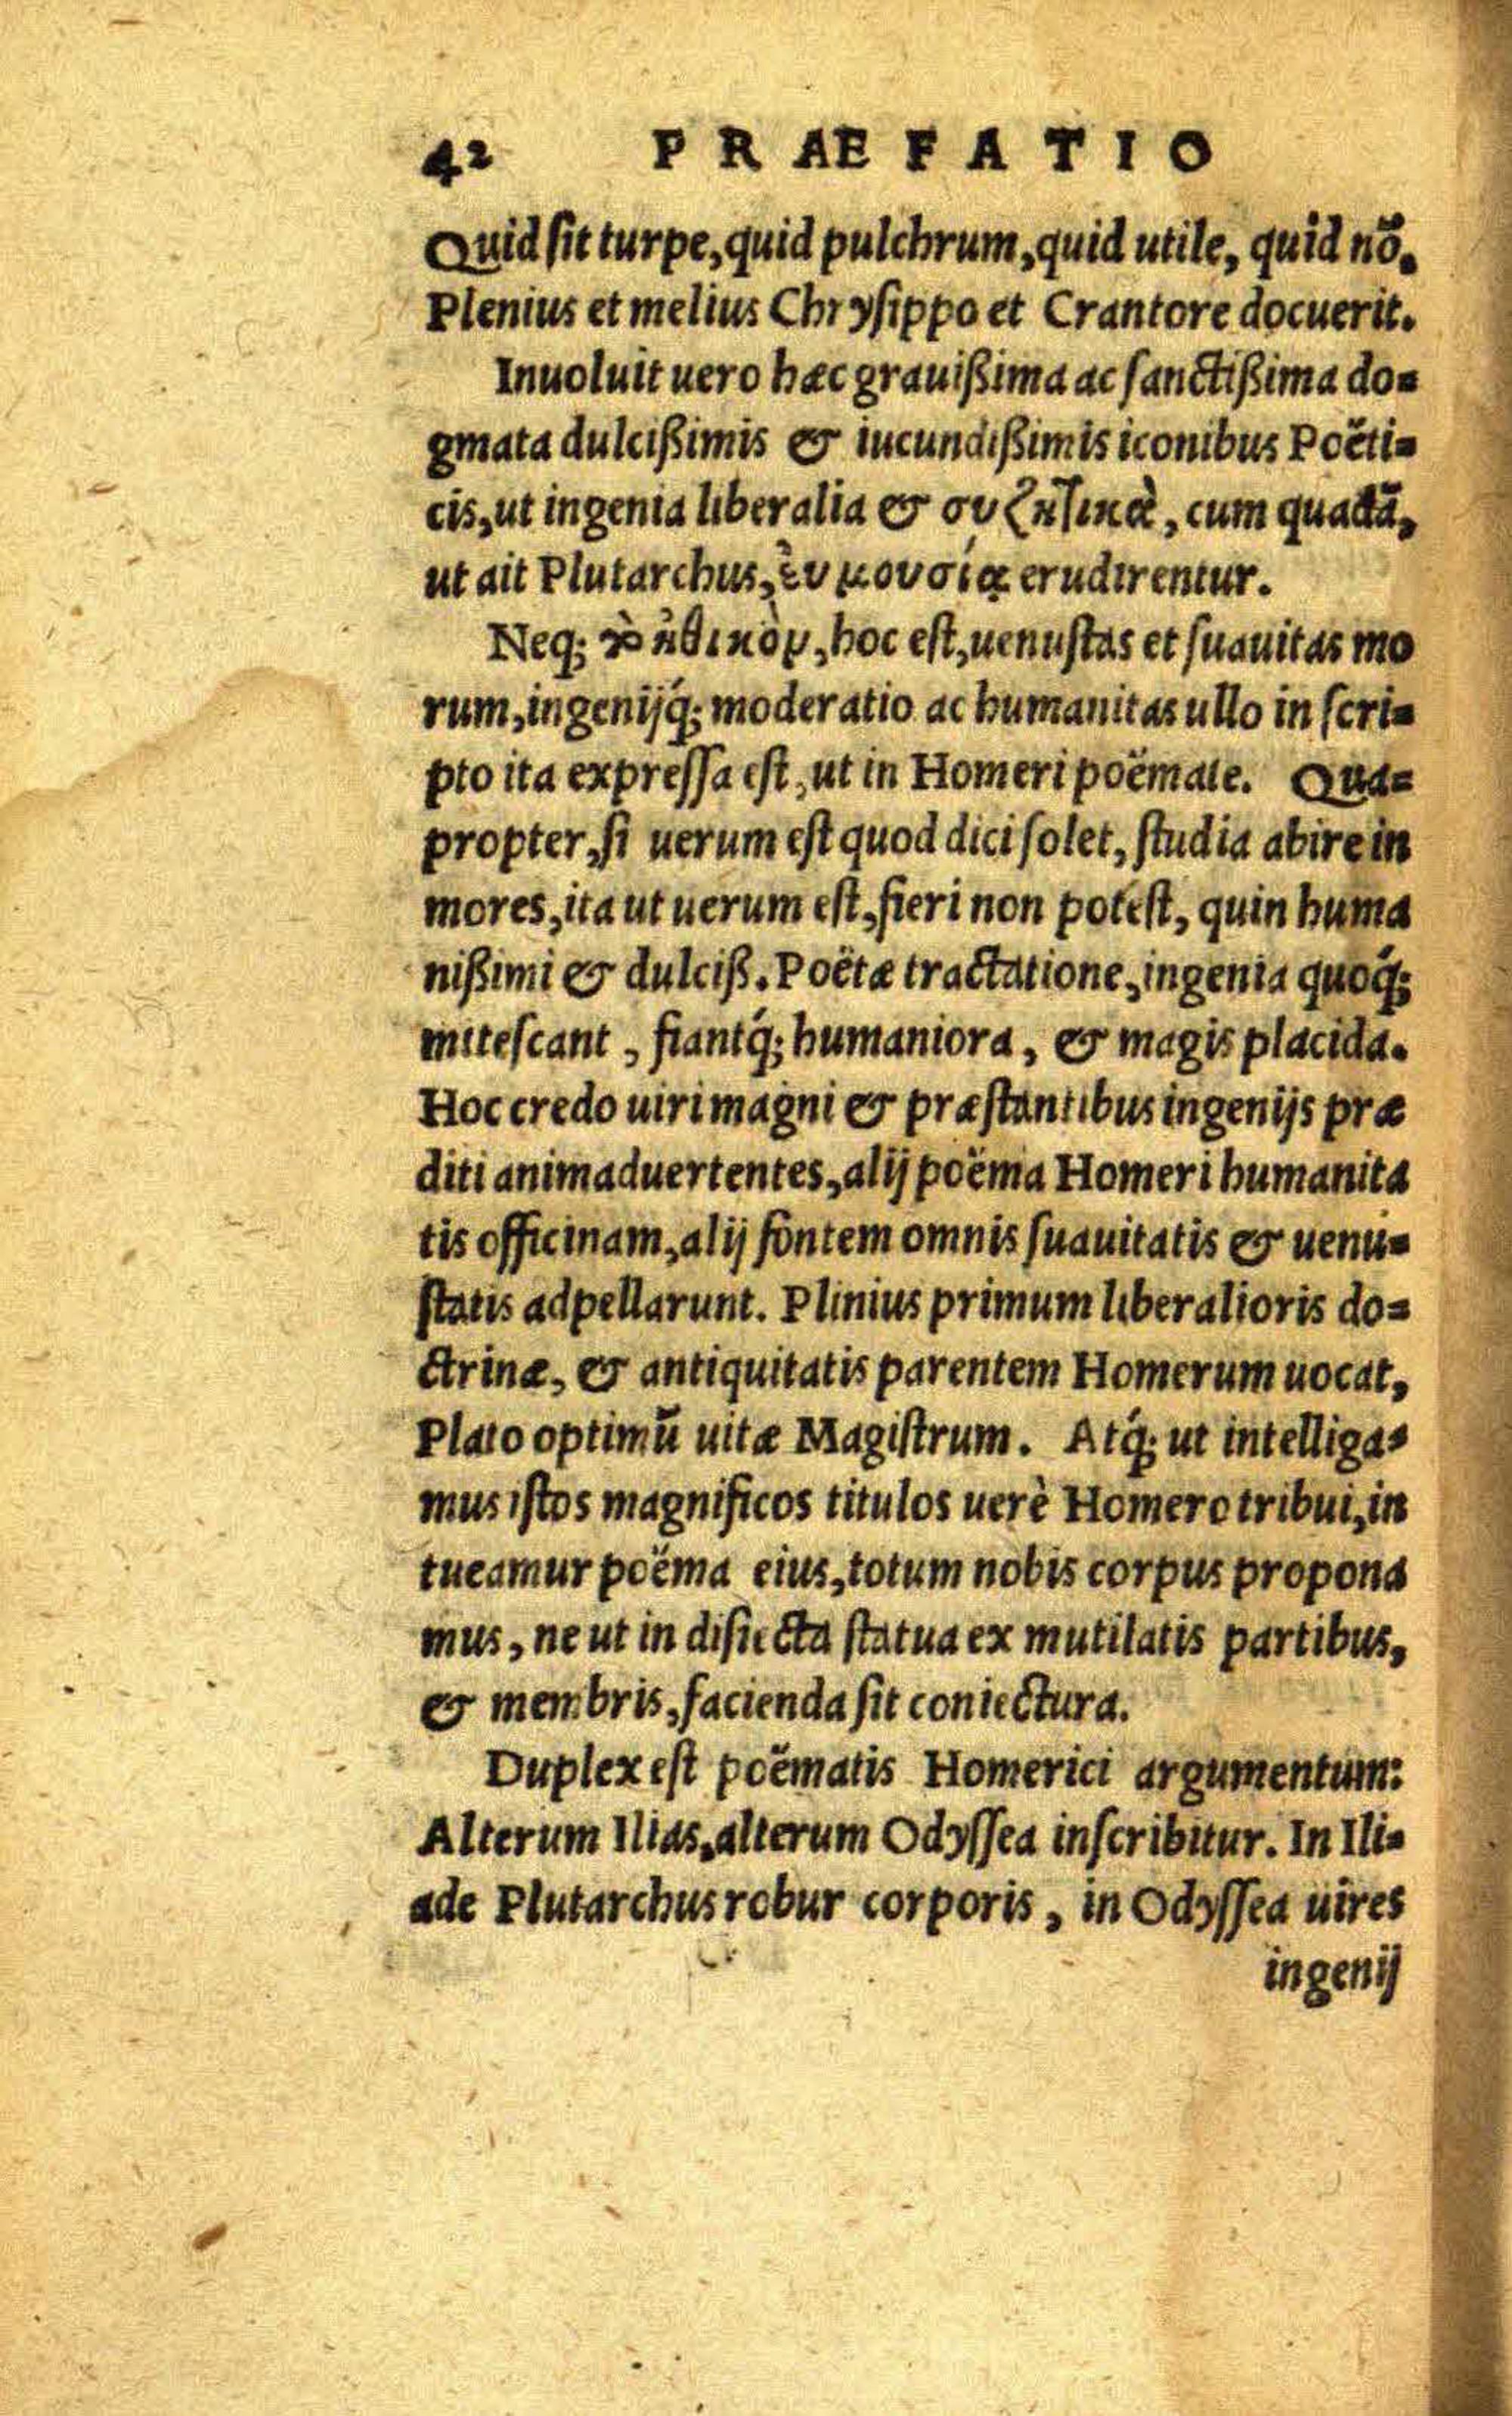 42 PRAEFATIO
Quid ſit turpe, quid pulchrum, quid utile, quid nõ.
Plenius et melius Chryſippo et Crantore docuerit.
Inuoluit uero hæc grauißima ac ſanctißima do=
gmata dulcißimis & iucundißimis iconibus Poëti=
cis, ut ingenia liberalia & συζητικὰ, cum quadã,
ut ait Plutarchus, ἐυμουσίᾳ erudirentur.
Neq; τὸ ἠθικὸν, hoc eſt, uenuſtas et ſuauitas mo
rum, ingenijq́; moderatio ac humanitas ullo in ſcri=
pto ita expreſſa eſt, ut in Homeri poëmate. Qua=
propter, ſi uerum eſt quod dici ſolet, ſtudia abire in
mores, ita ut uerum eſt, fieri non poteſt, quin huma
nißimi & dulciß. Poëtæ tractatione, ingenia quoq́;
miteſcant, fiantq́; humaniora, & magis placida.
Hoc credo uiri magni & præſtantibus ingenijs præ
diti animaduertentes, alij poëma Homeri humanita
tis officinam, alij fontem omnis ſuauitatis & uenu=
ſtatis adpellarunt. Plinius primum liberalioris do=
ctrinæ, & antiquitatis parentem Homerum uocat,
Plato optimũ uitæ Magiſtrum. Atq́; ut intelliga=
mus iſtos magnificos titulos uerè Homero tribui, in
tueamur poëma eius, totum nobis corpus propona
mus, ne ut in diſiecta ſtatua ex mutilatis partibus,
& membris, facienda ſit coniectura.
Duplex eſt poëmatis Homerici argumentum:
Alterum Ilias, alterum Odyſſea inſcribitur. In Ili=
ade Plutarchus robur corporis, in Odyſſea uires
ingenij